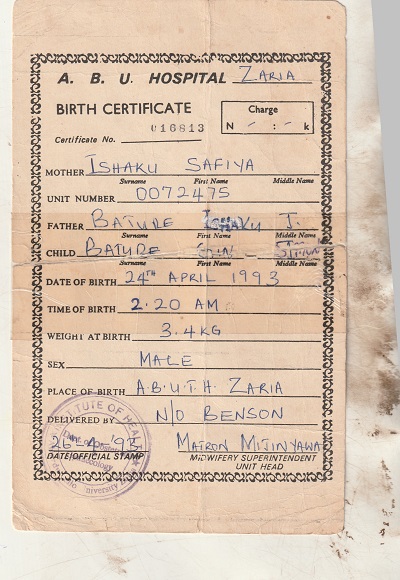 A. B. U. HOSPITAL ZARIA
BIRTH CERTIFICATE
Charge
N - : - k
Certificate No. 016813
MOTHER ISHAKU SAFIYA
Surname First Name Middle Name
UNIT NUMBER 0072475
FATHER BATURE ISHAKU J.
Surname First Name Middle Name
CHILD BATURE
Surname First Name Middle Name
DATE OF BIRTH 24TH APRIL 1993
TIME OF BIRTH 2.20 AM
WEIGHT AT BIRTH 3.4KG
SEX MALE
PLACE OF BIRTH A.B.U.T.H. ZARIA
DELIVERED BY N/O BENSON
26-4-93 MATRON MIJINYAWA
DATE/OFFICIAL STAMP MIDWIFERY SUPERINTENDENT
UNIT HEAD